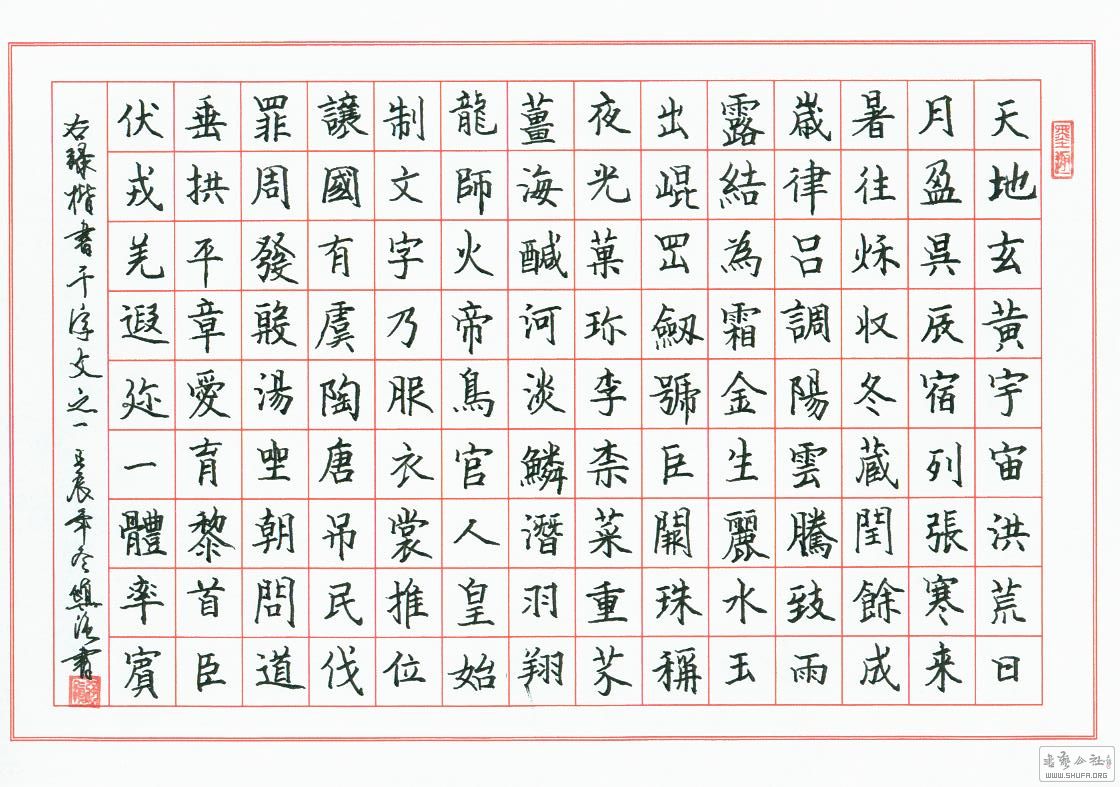 天地玄黃宇宙洪荒日
月盈吳辰宿列張寒来
暑往秌收冬蔵閏餘成
嵗律吕調陽雲騰致雨
露結為霜金生麗水玉
出崐罡劒號巨闕珠稱
夜光菓珎李柰菜重芥
薑海鹹河淡鱗潛羽翔
龍師火帝鳥官人皇始
制文字乃服衣裳推位
讓國有虞陶唐吊民伐
罪周發殷湯坐朝問道
垂拱平章愛育黎首臣
伏戎羌遐迩一體率賓
右録楷書千字文之一 壬辰年冬 書
书艺公社
WWW.SHUFA.ORG